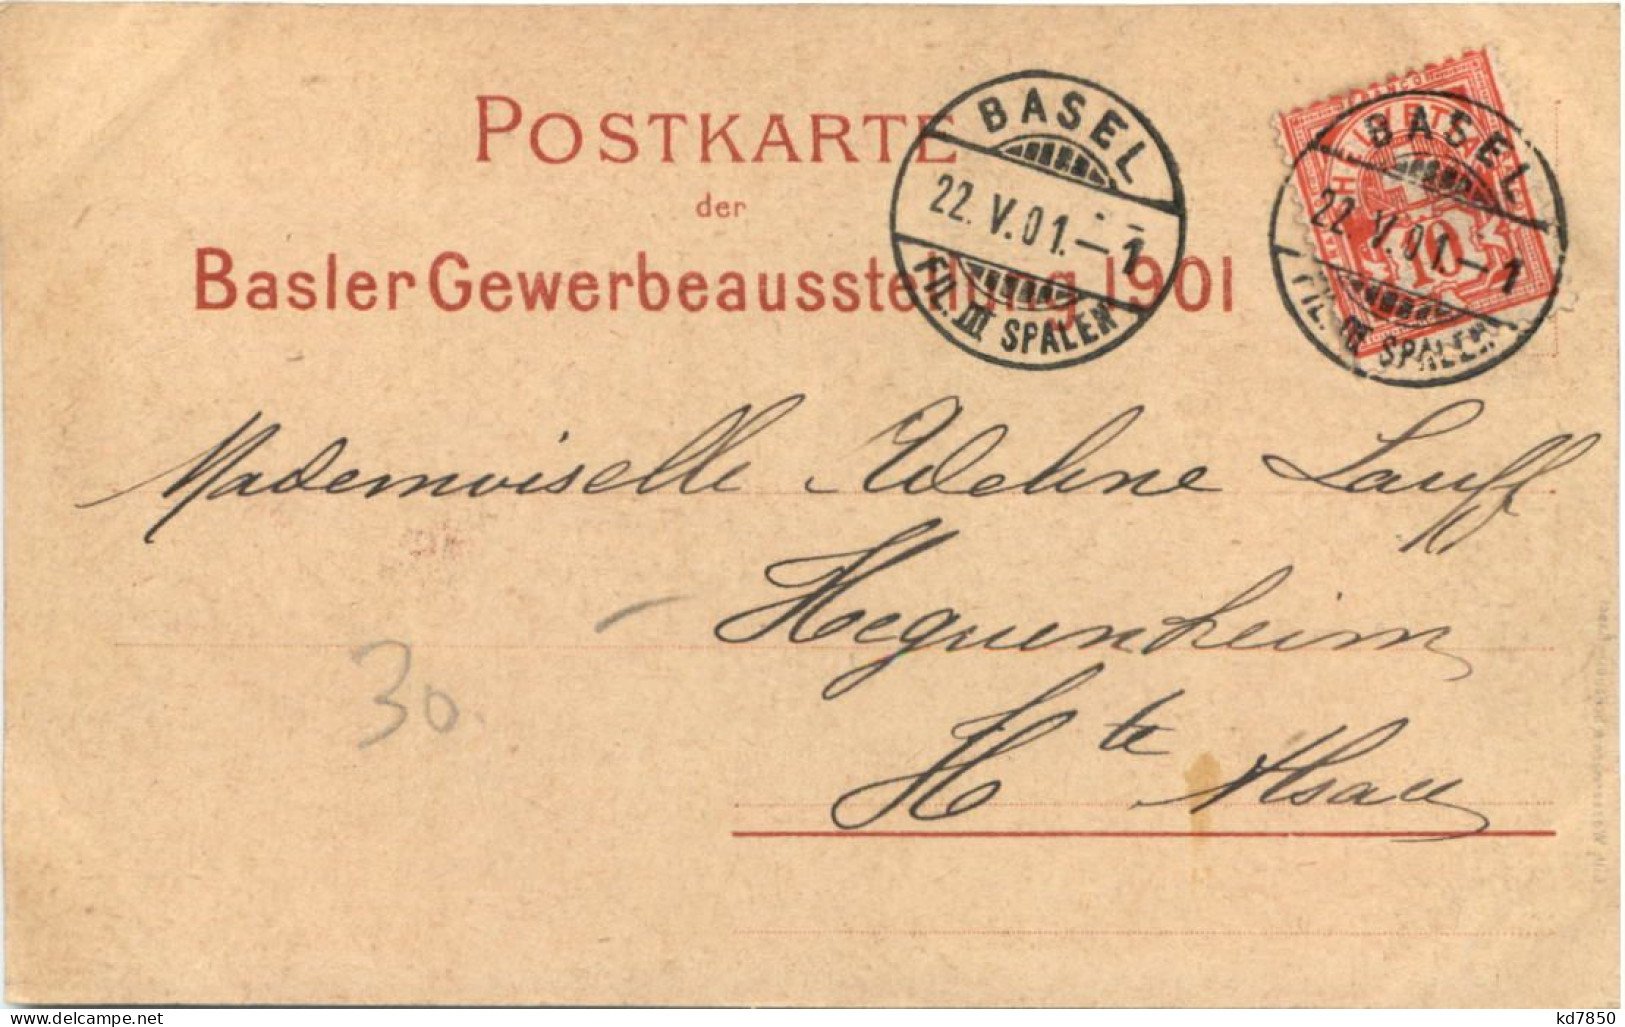 POSTKARTE
der
Basler Gewerbeausstellung 1901
BASEL
22. V. 01.–1
FIL. III SPALEN
BASEL
22. V. 01.–1
FIL. III SPALEN
FRANCO
HELVETIA
10
Mademoiselle Adeline Lauff
Heguenheim
Hte Alsace
30.
www.delcampe.net
kd7850